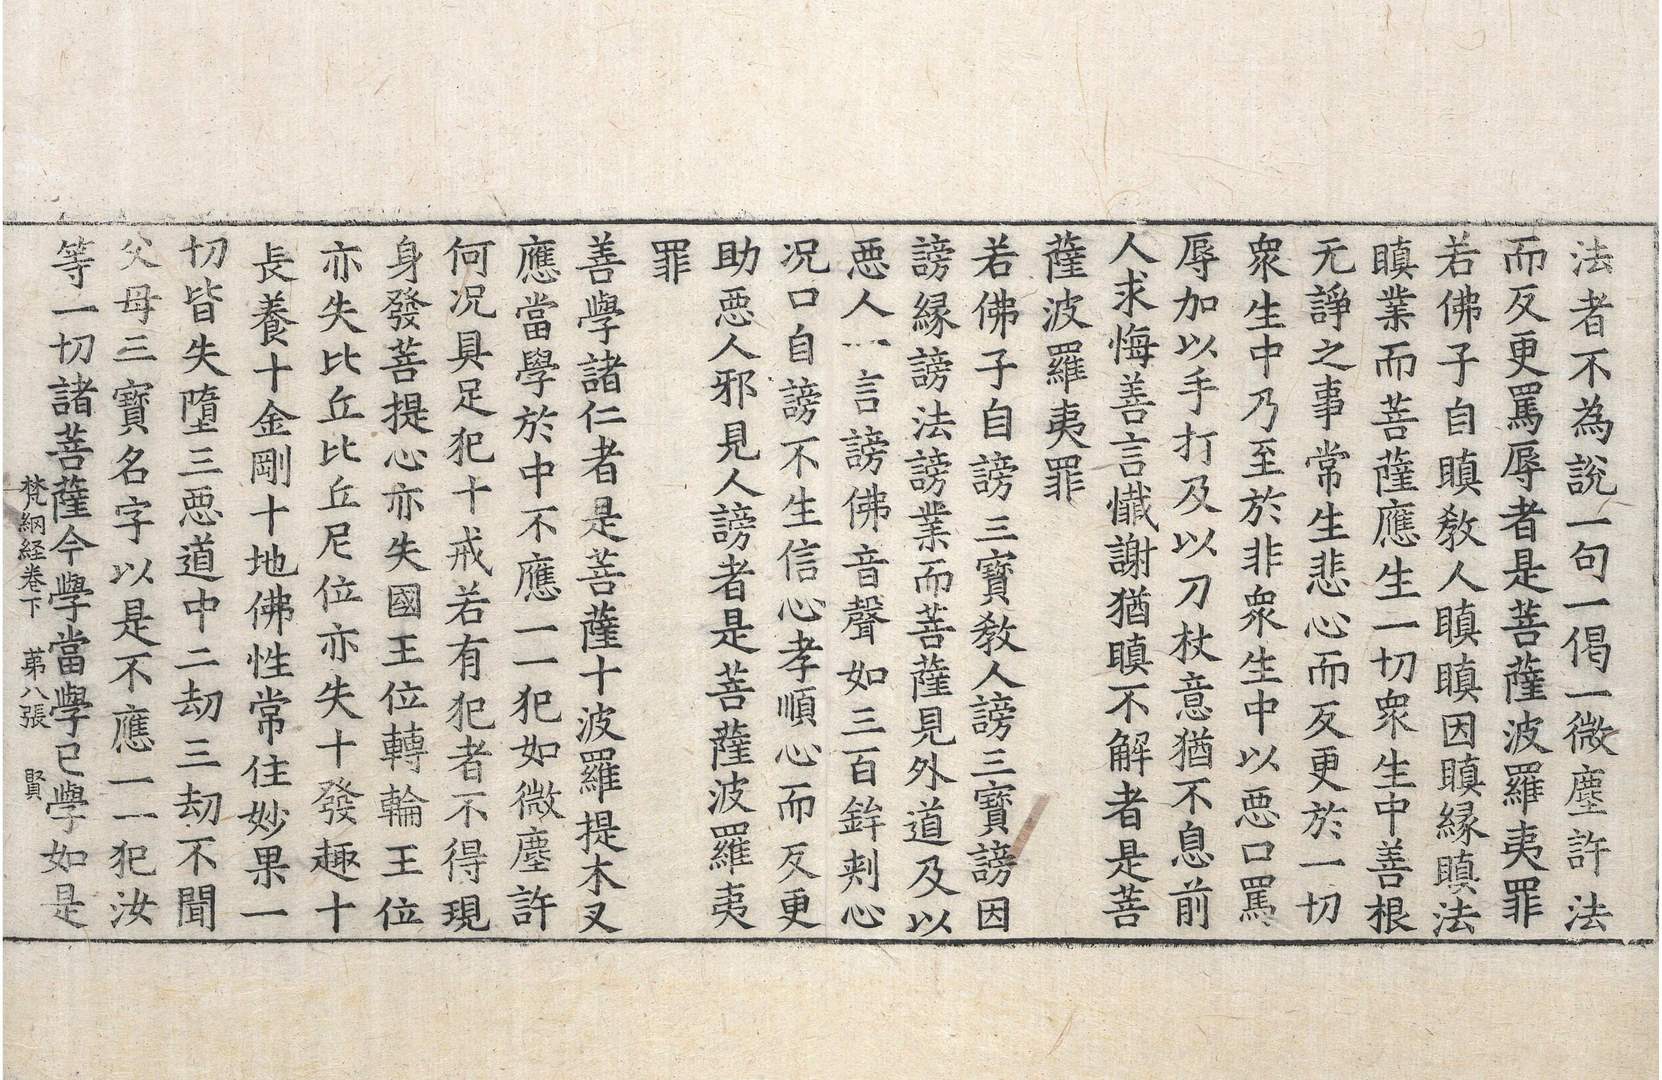 法者不為說一句一偈一微塵許法
而反更罵辱者是菩薩波羅夷罪
若佛子自瞋教人瞋瞋因瞋縁瞋法
瞋業而菩薩應生一切衆生中善根
无諍之事常生悲心而反更於一切
衆生中乃至於非衆生中以惡口罵
辱加以手打及以刀杖意猶不息前
人求悔善言懺謝猶瞋不解者是菩
薩波羅夷罪
若佛子自謗三寶教人謗三寶謗因
謗縁謗法謗業而菩薩見外道及以
惡人一言謗佛音聲如三百鉾刾心
况口自謗不生信心孝順心而反更
助惡人邪見人謗者是菩薩波羅夷
罪
善學諸仁者是菩薩十波羅提木叉
應當學於中不應一一犯如微塵許
何况具足犯十戒若有犯者不得現
身發菩提心亦失國王位轉輪王位
亦失比丘比丘尼位亦失十發趣十
長養十金剛十地佛性常住妙果一
切皆失墮三惡道中二劫三劫不聞
父母三寶名字以是不應一一犯汝
等一切諸菩薩今學當學已學如是
梵網経卷下 苐八張 賢